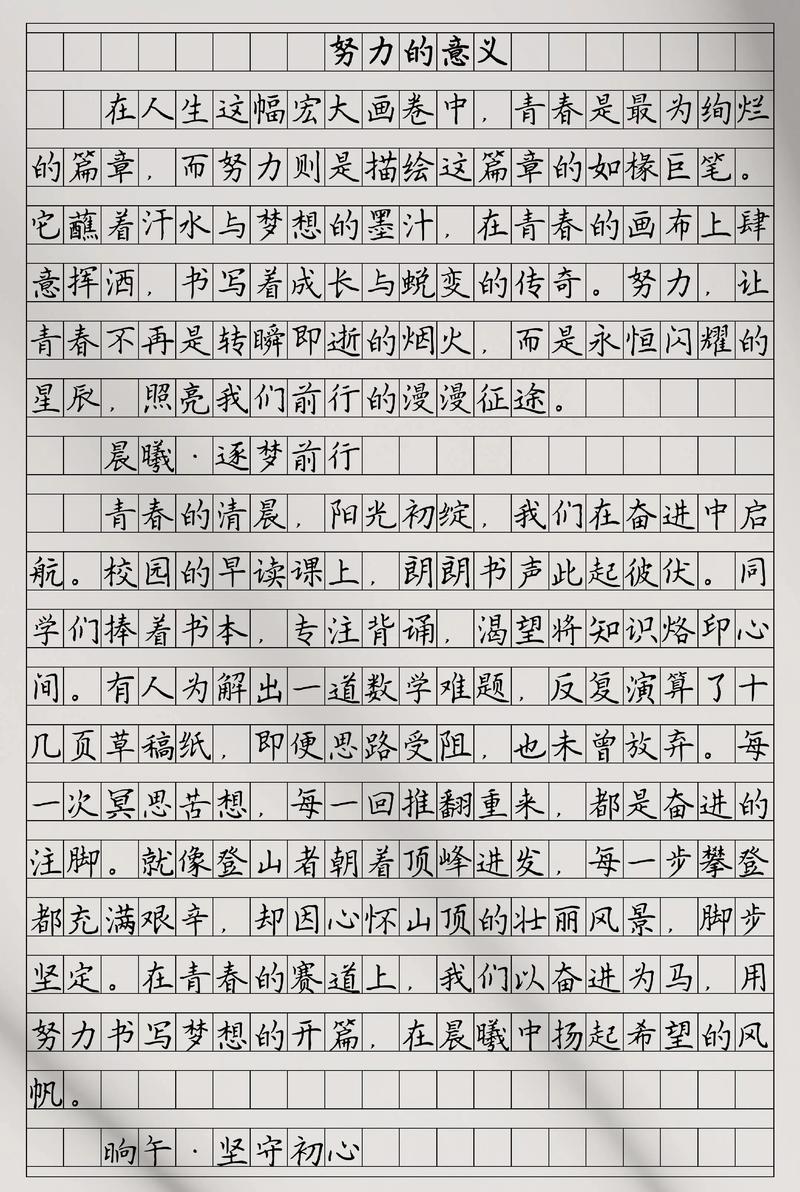 努力的意义
在人生这幅宏大画卷中，青春是最为绚烂
的篇章，而努力则是描绘这篇章的如椽巨笔。
它蘸着汗水与梦想的墨汁，在青春的画布上肆
意挥洒，书写着成长与蜕变的传奇。努力，让
青春不再是转瞬即逝的烟火，而是永恒闪耀的
星辰，照亮我们前行的漫漫征途。
晨曦·逐梦前行
青春的清晨，阳光初绽，我们在奋进中启
航。校园的早读课上，朗朗书声此起彼伏。同
学们捧着书本，专注背诵，渴望将知识烙印心
间。有人为解出一道数学难题，反复演算了十
几页草稿纸，即便思路受阻，也未曾放弃。每
一次冥思苦想，每一回推翻重来，都是奋进的
注脚。就像登山者朝着顶峰进发，每一步攀登
都充满艰辛，却因心怀山顶的壮丽风景，脚步
坚定。在青春的赛道上，我们以奋进为马，用
努力书写梦想的开篇，在晨曦中扬起希望的风
帆。
晌午·坚守初心